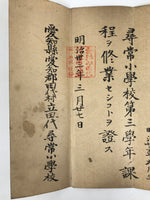 尋常小學校第三學年ノ課
程ヲ修業セシコトヲ證ス
明治世一年三月廿七日
愛知縣愛知郡田代村立田代尋常小學校